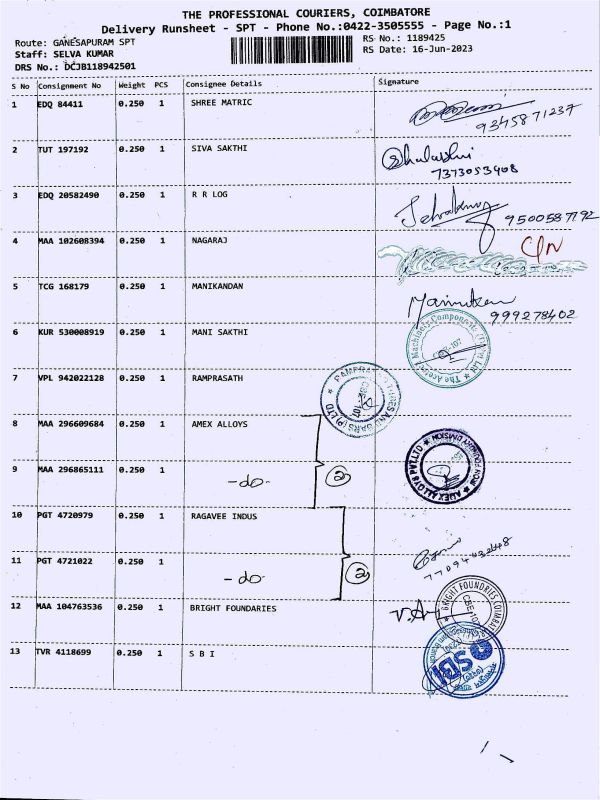 THE PROFESSIONAL COURIERS, COIMBATORE
Delivery Runsheet - SPT - Phone No.:0422-3505555 - Page No.:1
Route: GANESAPURAM SPT
RS No.: 1189425
Staff: SELVA KUMAR
RS Date: 16-Jun-2023
DRS No.: DCJB118942501
S No Consignment No Weight PCS Consignee Details Signature
1 EDQ 84411 0.250 1 SHREE MATRIC
9345871237
2 TUT 197192 0.250 1 SIVA SAKTHI
7373053908
3 EDQ 20582490 0.250 1 R R LOG
9500587792
4 MAA 102608394 0.250 1 NAGARAJ
5 TCG 168179 0.250 1 MANIKANDAN
999278402
6 KUR 530008919 0.250 1 MANI SAKTHI
7 VPL 942022128 0.250 1 RAMPRASATH
8 MAA 296609684 0.250 1 AMEX ALLOYS
9 MAA 296865111 0.250 1 -do- 2
10 PGT 4720979 0.250 1 RAGAVEE INDUS
11 PGT 4721022 0.250 1 -do- 2
12 MAA 104763536 0.250 1 BRIGHT FOUNDARIES
BRIGHT FOUNDRIES
13 TVR 4118699 0.250 1 S B I
SBI